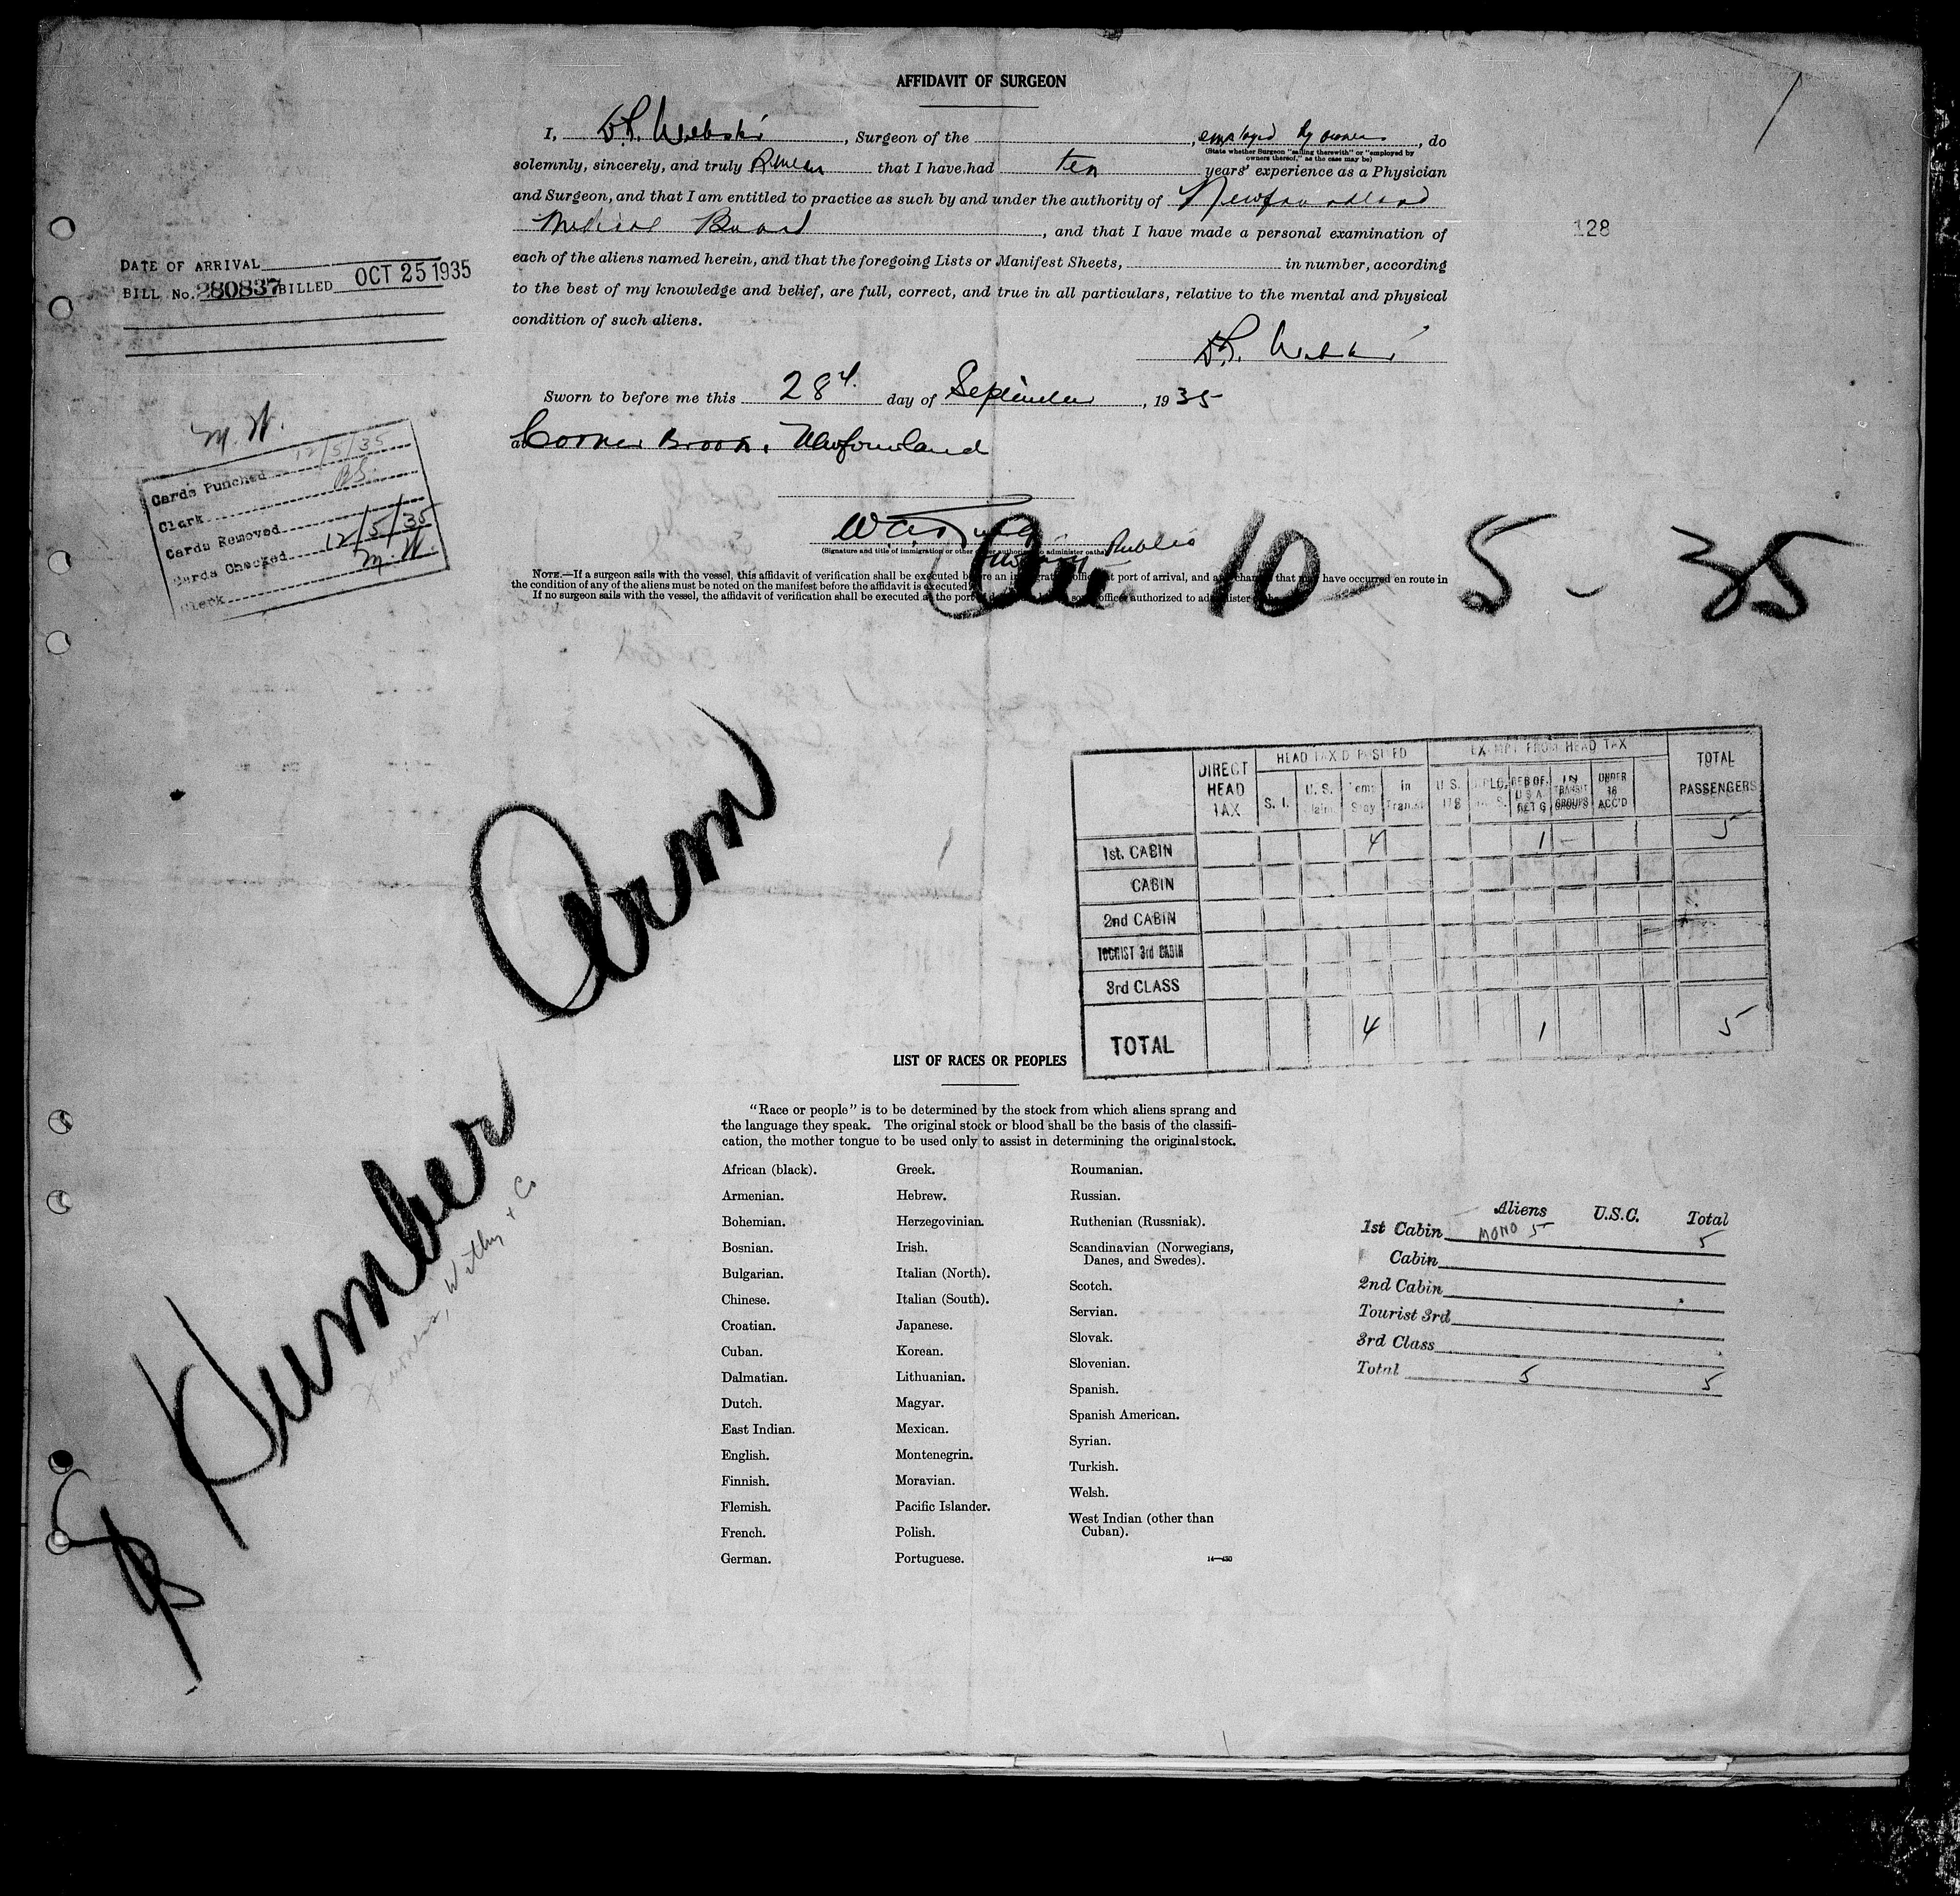 AFFIDAVIT OF SURGEON
I, , Surgeon of the , employed by owners , do
(State whether Surgeon "sailing therewith" or "employed by
owners thereof," as the case may be)
solemnly, sincerely, and truly that I have had ten years' experience as a Physician
and Surgeon, and that I am entitled to practice as such by and under the authority of Newfoundland
Medical Board , and that I have made a personal examination of
each of the aliens named herein, and that the foregoing Lists or Manifest Sheets, in number, according
to the best of my knowledge and belief, are full, correct, and true in all particulars, relative to the mental and physical
condition of such aliens.
128
DATE OF ARRIVAL
BILL No. 280837 BILLED OCT 25 1935
Sworn to before me this 28th day of September , 1935
at Corner Brook, Newfoundland
M. W.
Cards Punched 12/5/35
Clerk
Cards Removed
Cards Checked 12/5/35
Clerk M. W.
Notary Public
(Signature and title of immigration or other officer authorized to administer oaths)
Arr 10 - 5 - 35
NOTE.—If a surgeon sails with the vessel, this affidavit of verification shall be executed before an immigration officer at port of arrival, and any changes that may have occurred en route in
the condition of any of the aliens must be noted on the manifest before the affidavit is executed.
If no surgeon sails with the vessel, the affidavit of verification shall be executed at the port of departure before some officer authorized to administer oaths.
SS Humber Arm
Furness, Withy + Co
DIRECT HEAD TAX
HEAD TAX DEPOSITED
EXEMPT FROM HEAD TAX
TOTAL PASSENGERS
S. I.
U. S. Claim
Temp Stay
In Transit
U. S.
IN TRANSIT GROUPS
UNDER 16 ACC'D
1st. CABIN 4 1 - 5
CABIN
2nd CABIN
TOURIST 3rd CABIN
3rd CLASS
TOTAL 4 1 5
LIST OF RACES OR PEOPLES
"Race or people" is to be determined by the stock from which aliens sprang and
the language they speak. The original stock or blood shall be the basis of the classifi-
cation, the mother tongue to be used only to assist in determining the original stock.
African (black).
Armenian.
Bohemian.
Bosnian.
Bulgarian.
Chinese.
Croatian.
Cuban.
Dalmatian.
Dutch.
East Indian.
English.
Finnish.
Flemish.
French.
German.
Greek.
Hebrew.
Herzegovinian.
Irish.
Italian (North).
Italian (South).
Japanese.
Korean.
Lithuanian.
Magyar.
Mexican.
Montenegrin.
Moravian.
Pacific Islander.
Polish.
Portuguese.
Roumanian.
Russian.
Ruthenian (Russniak).
Scandinavian (Norwegians,
Danes, and Swedes).
Scotch.
Servian.
Slovak.
Slovenian.
Spanish.
Spanish American.
Syrian.
Turkish.
Welsh.
West Indian (other than
Cuban).
14—430
Aliens U.S.C. Total
1st Cabin MONO 5 5
Cabin
2nd Cabin
Tourist 3rd
3rd Class
Total 5 5